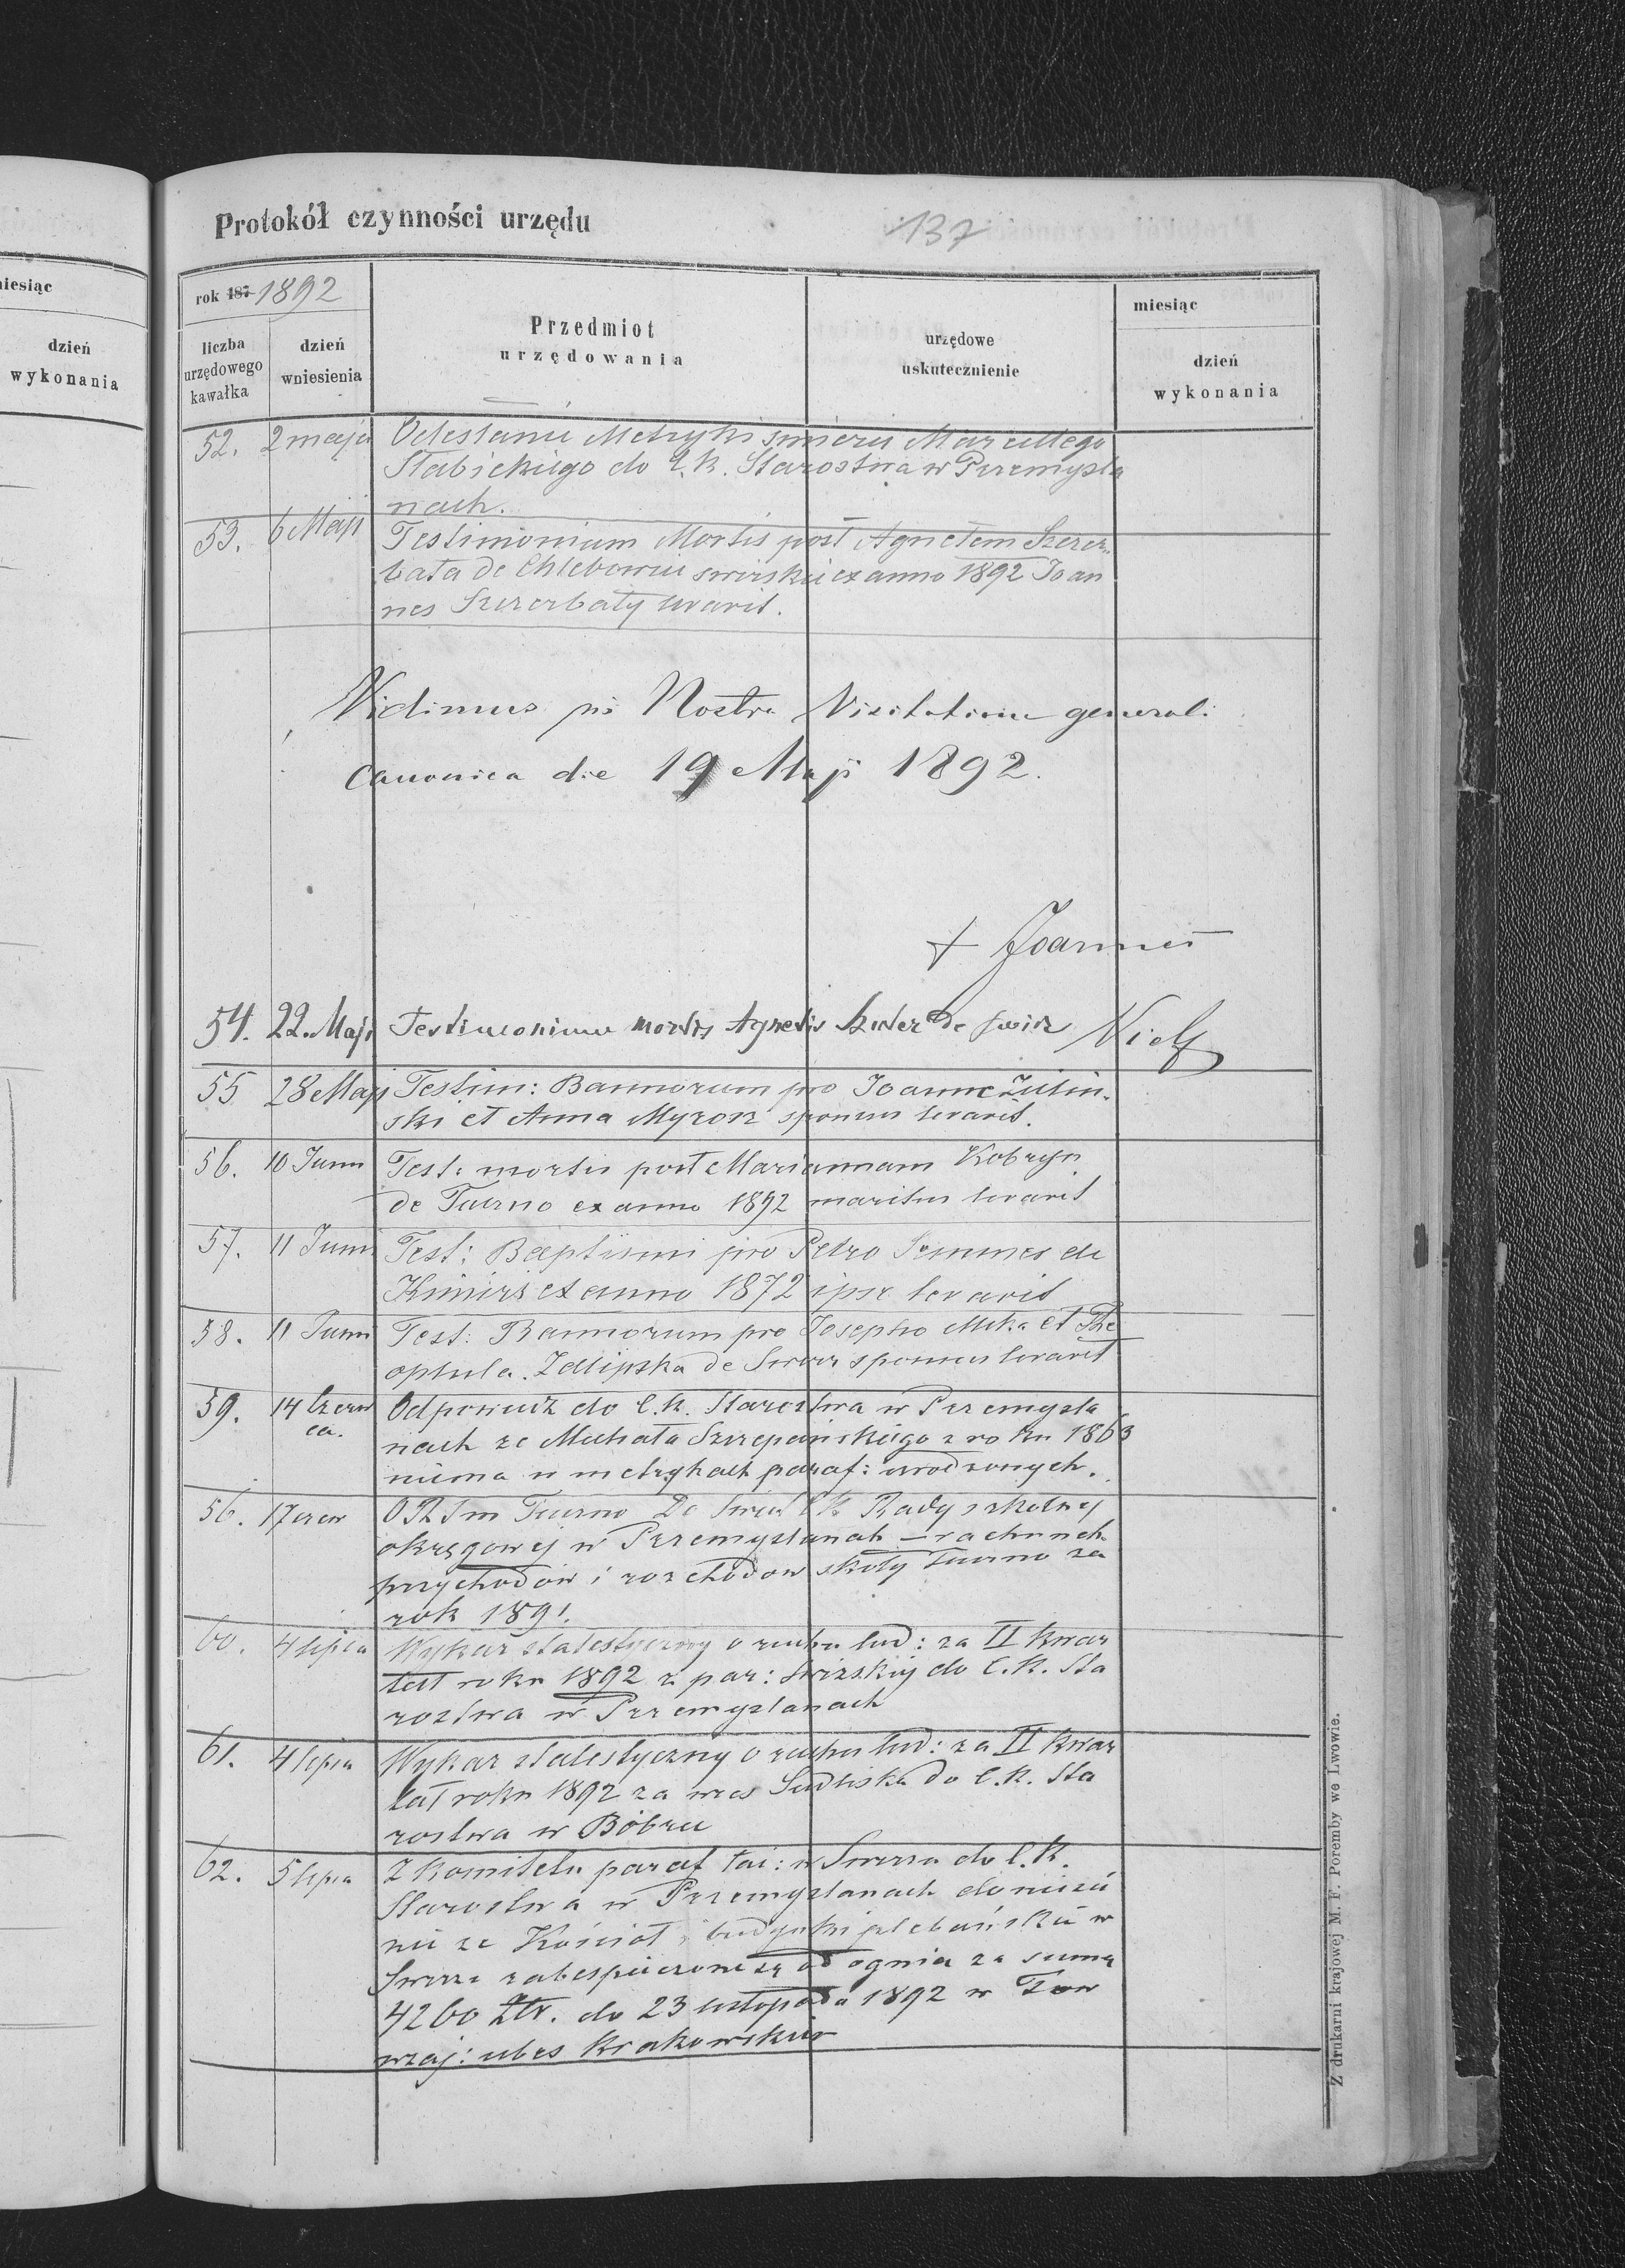 Protokół czynności urzędu
137
miesiąc
dzień
wykonania
rok 187 1892
liczba
urzędowego
kawałka
dzień
wniesienia
Przedmiot
urzędowania
urzędowe
uskutecznienie
miesiąc
dzień
wykonania
52. 2 maja Odesłanie Metryki śmierci Marcellego
Słabickiego do C.K. Starostwa w Przemyśla
nach.
53. 6 Maji Testimonium Mortis post Agnetem Szczer-
bata de Chlebowice swirskie ex anno 1892 Joan
nes Szczerbaty levavit.
Vidimus in Nostra Visitatione generali
Canonica die 19 Maji 1892.
+ Joannes
54. 22. Maji Testimonium mortis Agnetis de Swirz
55 28 Maji Testim: Bannorum pro Joanne Zieliń-
ski et Anna Myron sponsus levavit.
56. 10 Junii Test: mortis post Mariannam Kobryn
de Tuczno ex anno 1892 maritus levavit
57. 11 Junii Test: Baptismi pro Petro de
Kimirz ex anno 1872 ipse levavit
58. 11 Junii Test: Bannorum pro Josepho Mika et The
ophila Zalipska de Swirz sponsus levavit
59. 14 Czerw
ca. Odpowiedź do C.K. Starostwa w Przemyśla
nach że Michała Szczepańskiego z roku 1863
niema w metrykach paraf: urodzonych.
56. 17 czerw Do C.K. Rady szkolnej
okręgowej w Przemyślanach — rachunek
przychodów i rozchodów szkoły Tuczno za
rok 1891.
60. 4 lipca Wykaz statestyczny o ruchu lud: za II kwar
tał roku 1892 z par: świrskiej do C.K. Sta
rostwa w Przemyślanach
61. 4 lipca Wykaz statestyczny o ruchu lud: za II kwar
tał roku 1892 za wieś Siedliska do C.K. Sta
rostwa w Bóbrce
62. 5 lipca Z Komitetu paraf łac: w Swirzu do C.K.
Starostwa w Przemyślanach doniesie
nie że Kościół i budynki plebańskie w
Swirzu zabespieczone są od ognia za sumę
4260 Złr. do 23 listopada 1892 w Tow
wzaj: ubes Krakowskim
Z drukarni krajowej M. F. Poremby we Lwowie.